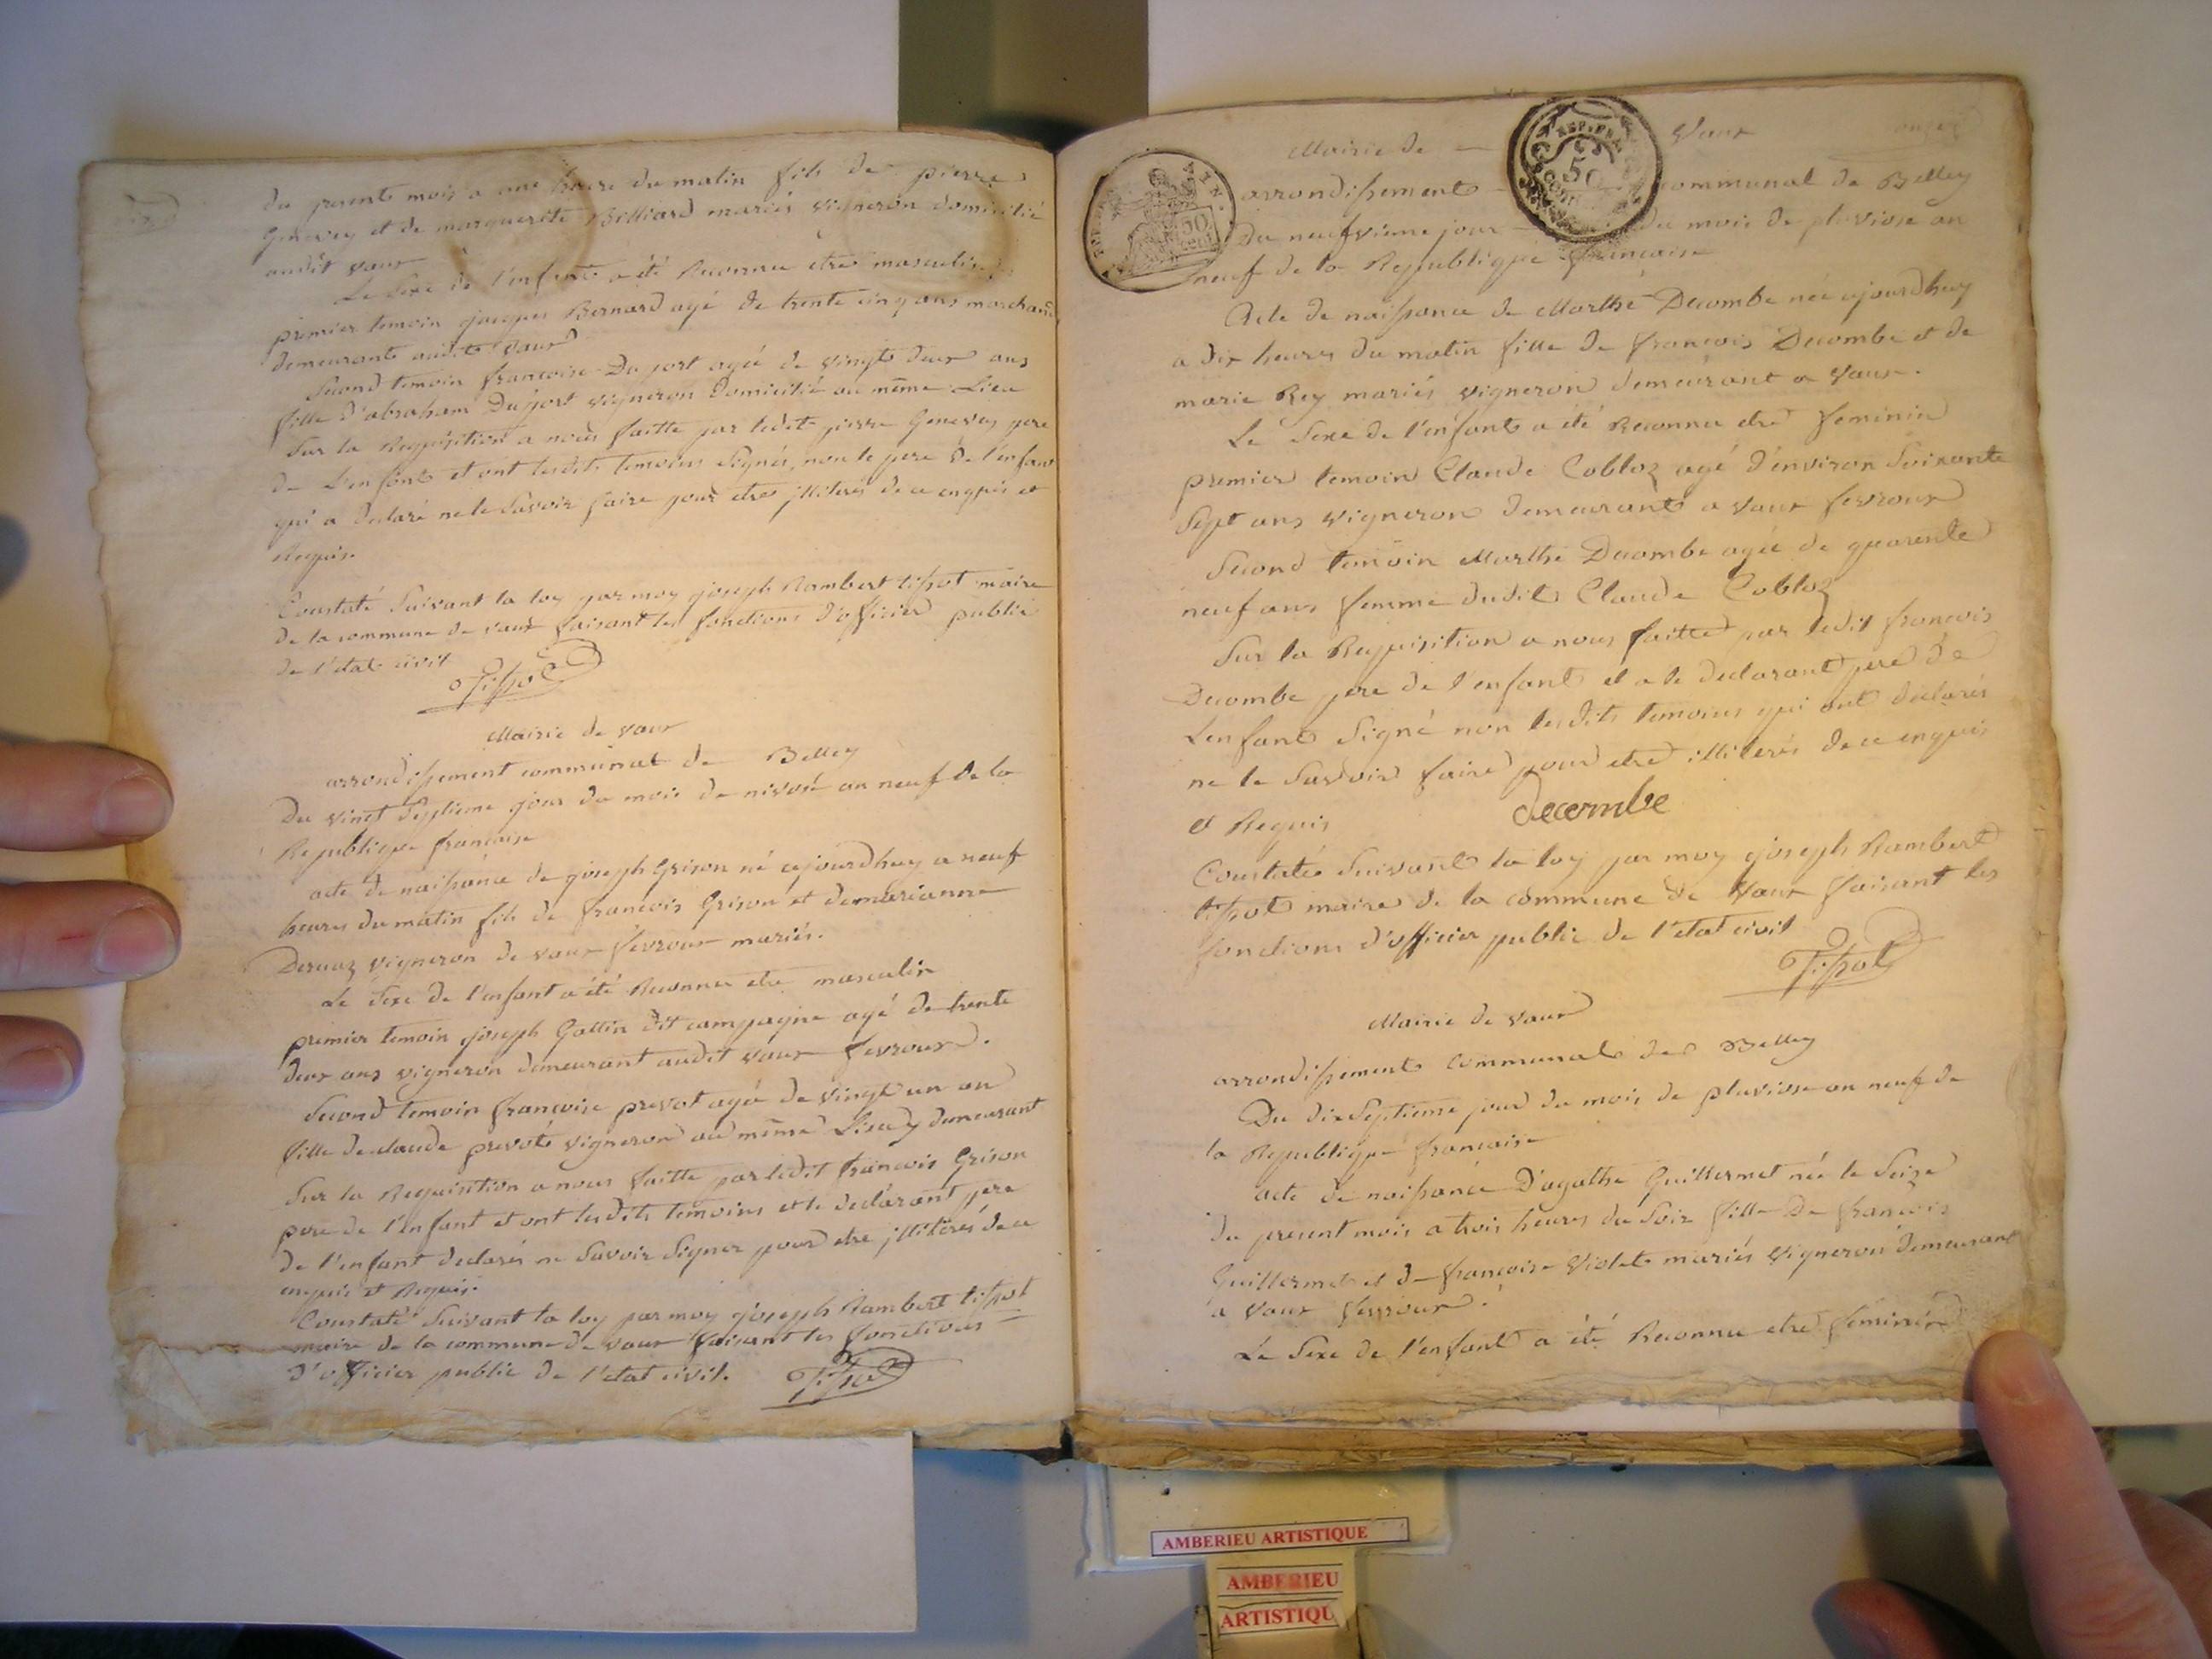 du present mois a une heure du matin fils de pierre
Genevey et de marguerite Billiard mariés vigneron domicilié
audit vaux
Le Sexe de l'enfant a été Reconnu etre masculin
premier temoin jacques Bernard agé de trente cinq ans marchand
demeurant audit vaux
Second temoin francoise Dujort agée de vingt deux ans
fille d'abraham Dujort vigneron domicilié au même Lieu
Sur la Requisition a nous faitte par ledit pierre Genevey pere
de L'enfant et ont lesdits temoins signés, non le pere de l'enfant
qui a declaré ne le Savoir faire pour etre jlliteré de ce enquis et
Requis.
Constaté Suivant la loy par moy joseph Rambert tissot maire
de la commune de vaux faisant les fonctions d'officier public
de l'etat civil
Tissot
Mairie de vaux
arrondissement communal de Belley
Du vingt Septieme jour du mois de nivose an neuf de la
Republique francaise
acte de naissance de joseph Grison né cejourdhuy a neuf
heures du matin fils de francois Grison et de marianne
Deruaz vigneron de vaux fevroux mariés.
Le Sexe de l'enfant a été Reconnu etre masculin
premier temoin joseph Gottin dit campagne agé de trente
deux ans vigneron demeurant audit vaux fevroux.
Second temoin francoise prevot agée de vingt un an
fille de claude prevot vigneron au même Lieu y demeurant
Sur la Requisition a nous faitte par ledit francois Grison
pere de l'enfant et ont lesdits temoins et le declarant pere
de l'enfant declarés ne Savoir Signer pour etre jlliterés de ce
enquis et Requis.
Constaté Suivant la loy par moy joseph Rambert tissot
maire de la commune de vaux faisant les fonctions
d'officier public de l'etat civil.
Tissot
Mairie de Vaux
arrondissement communal de Belley
Du neufvieme jour du mois de pluviose an
neuf de la Republique francaise
Acte de naissance de Marthe Decombe née cejourdhuy
a dix heures du matin fille de francois Decombe et de
marie Rey mariés vigneron demeurant a Vaux.
Le Sexe de l'enfant a été Reconnu etre feminin
premier temoin Claude Cobloz agé d'environ Soixante
Sept ans vigneron demeurant a vaux fevroux
Second temoin Marthe Decombe agée de quarente
neuf ans femme dudit Claude Cobloz
Sur la Requisition a nous faitte par ledit francois
Decombe pere de l'enfant et a le declarant pere de
L'enfant Signé non lesdits temoins qui ont declarés
ne le Savoir faire pour etre illiterés de ce enquis
et Requis
decombe
Constaté Suivant la loy par moy joseph Rambert
tissot maire de la commune de Vaux faisant les
fonctions d'officier public de l'etat civil
Tissot
Mairie de vaux
arrondissement communal de Belley
Du dix Septieme jour du mois de pluviose an neuf de
la Republique francaise
acte de naissance D'agathe Guillermet née le Seize
du present mois a trois heures du Soir fille De francois
Guillermet et de francoise Violet mariés vigneron demeurant
a Vaux fevroux.
Le Sexe de l'enfant a été Reconnu etre feminin
AMBERIEU ARTISTIQUE
AMBERIEU
ARTISTIQU